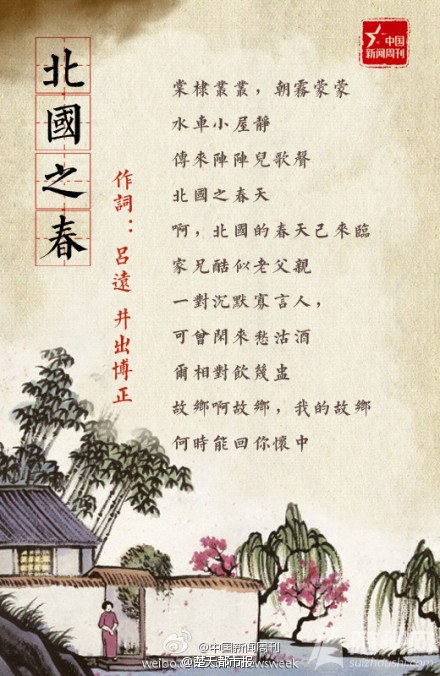 中国
新闻周刊
北國之春
作詞：呂遠 井出博正
棠棣叢叢，朝霧蒙蒙
水車小屋靜
傳來陣陣兒歌聲
北國之春天
啊，北國的春天已來臨
家兄酷似老父親
一對沉默寡言人，
可曾閑來愁沽酒
爾相對飲幾盅
故鄉啊故鄉，我的故鄉
何時能回你懷中
@中国新闻周刊
@楚天都市报
suizhoushi.com